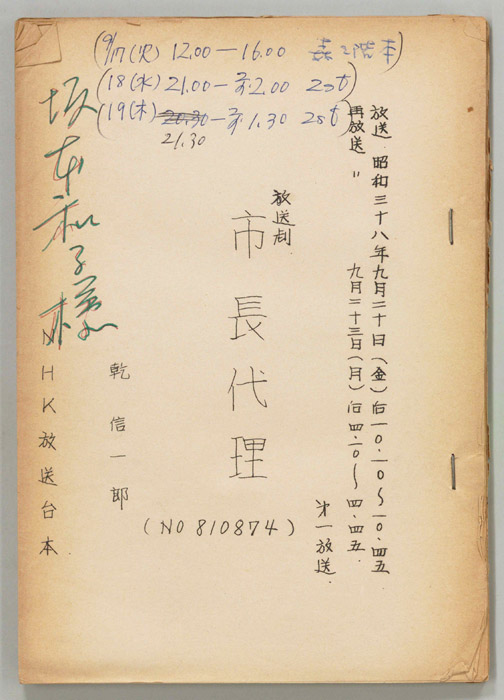 (9/17(火) 12.00—16.00 2階本)
(18(水) 21.00—翌2.00 2st)
(19(木) 20.30 21.30—翌1.30 2st)
放送 昭和三十八年九月二十日(金)后一〇.一〇〜一〇.四五
再放送 〃 九月二十三日(月)后四.一〇〜四.四五
第一放送.
放送劇
市長代理
(NO 810874)
乾信一郎
坂本和子様
NHK放送台本